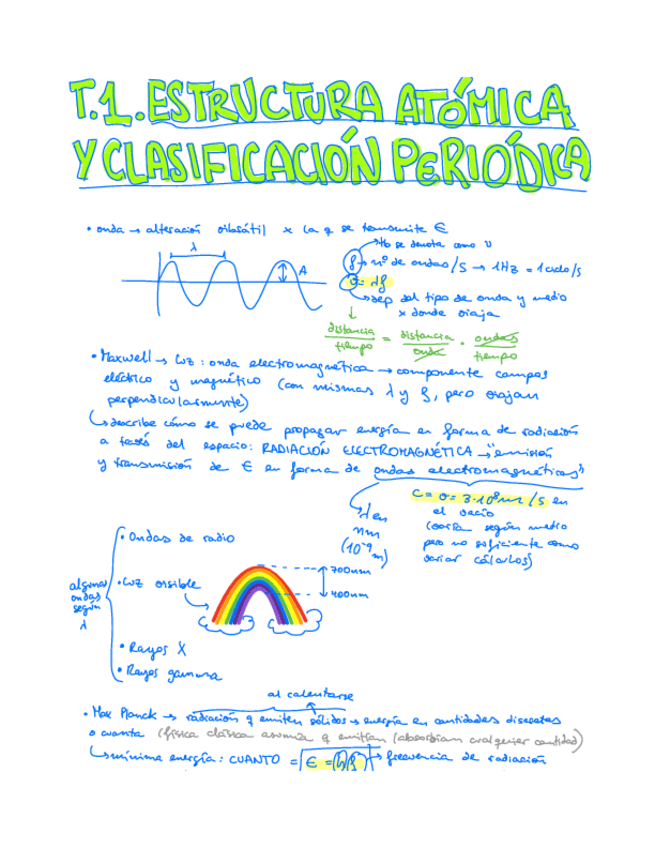 T.1. ESTRUCTURA ATÓMICA
Y CLASIFICACIÓN PERIÓDICA
• onda → alteración vibrátil x la q se transmite E
↳ tb se denota como ν
λ
A
f → nº de ondas/s → 1Hz = 1 ciclo/s
v = λf
↳ dep del tipo de onda y medio
x donde viaja
distancia/tiempo = distancia/onda · ondas/tiempo
• Maxwell → luz: onda electromagnética → componente campos
eléctrico y magnético (con mismas λ y f, pero viajan
perpendicularmente)
↳ describe cómo se puede propagar energía en forma de radiación
a través del espacio: RADIACIÓN ELECTROMAGNÉTICA → "emisión
y transmisión de E en forma de ondas electromagnéticas"
λ en
nm
(10⁻⁹ m)
c = v = 3·10⁸ m/s en
el vacío
(varía según medio
pero no suficiente como
variar cálculos)
algunas
ondas
según
λ
• Ondas de radio
• Luz visible
700nm
400nm
• Rayos X
• Rayos gamma
al calentarse
• Max Planck → radiación q emiten sólidos → energía en cantidades discretas
o cuanta (física clásica asumía q emitían/absorbían cualquier cantidad)
↳ mínima energía: CUANTO = E = hf → frecuencia de radiación